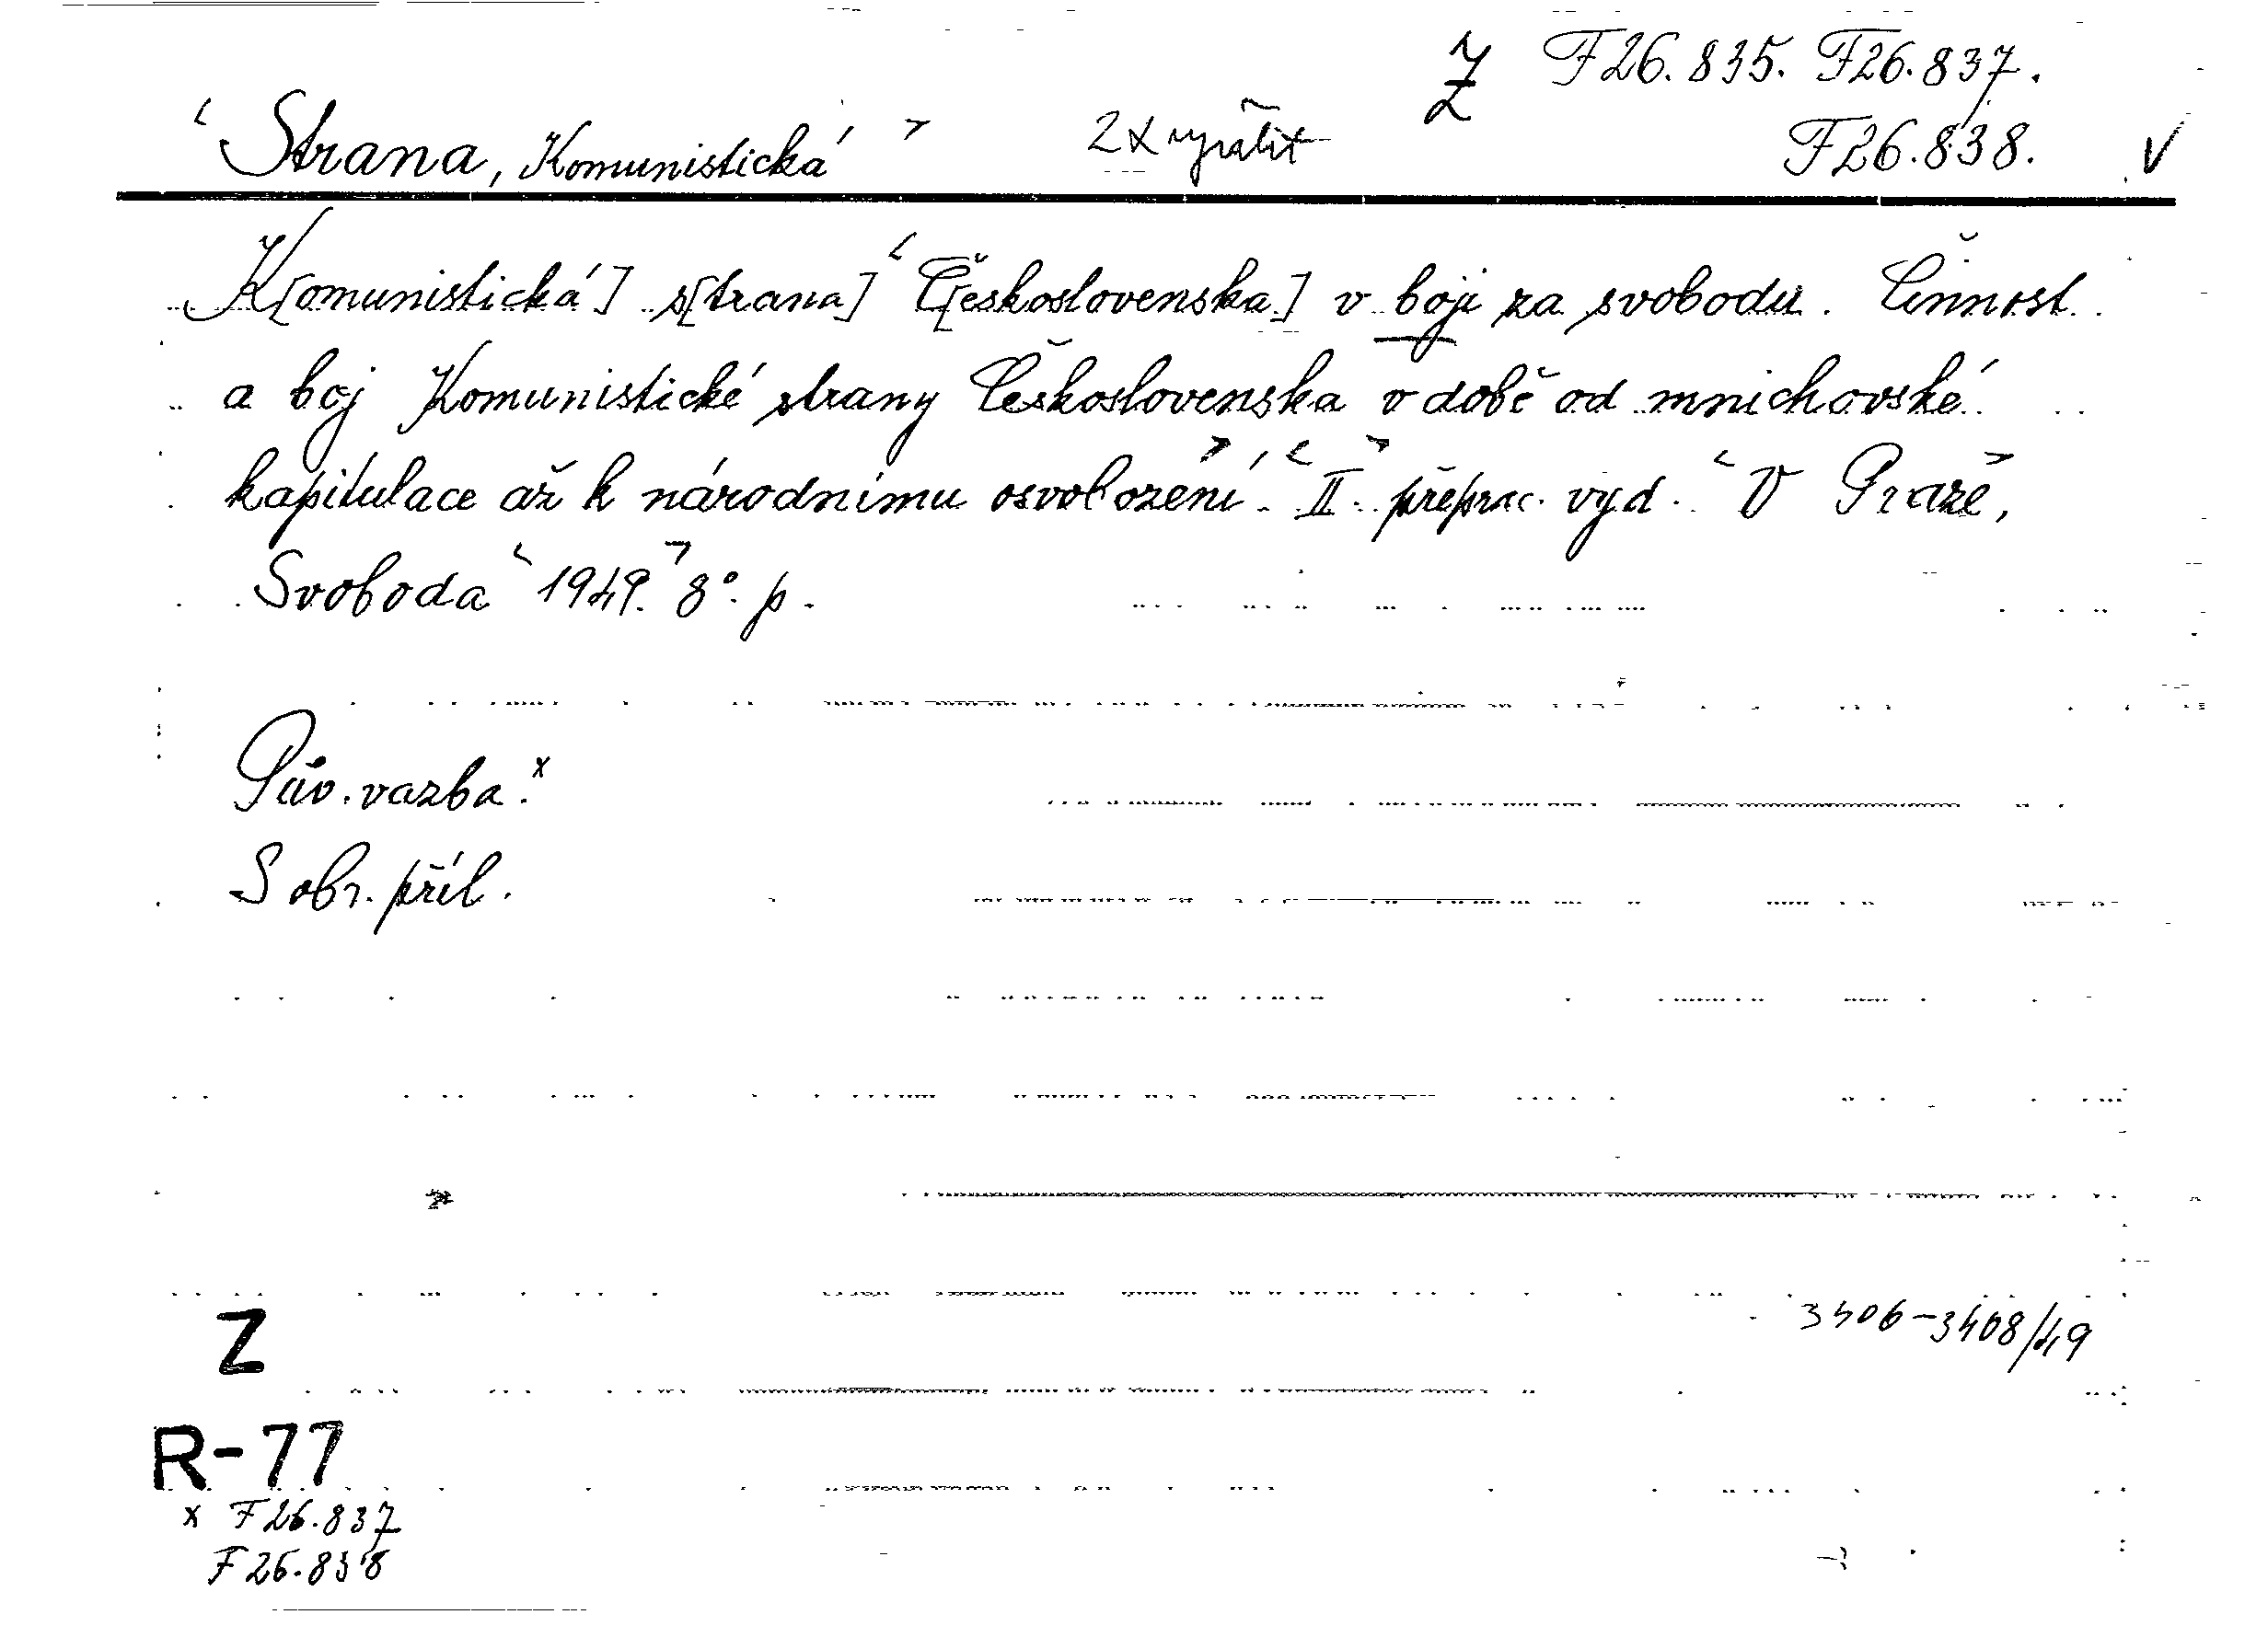 Z F26.835. F26.837.
Strana, Komunistická 2x vyřadit F26.838. V
K[omunistická] s[trana] Č[eskoslovenska] v boji za svobodu. Činnost
a boj Komunistické strany Československa v době od mnichovské
kapitulace až k národnímu osvobození. II. přeprac. vyd. V Praze,
Svoboda 1949. 8°. p.
Pův. vazba.x
S obr. příl.
Z
3406-3408/49
R-77
x F26.837
F26.838